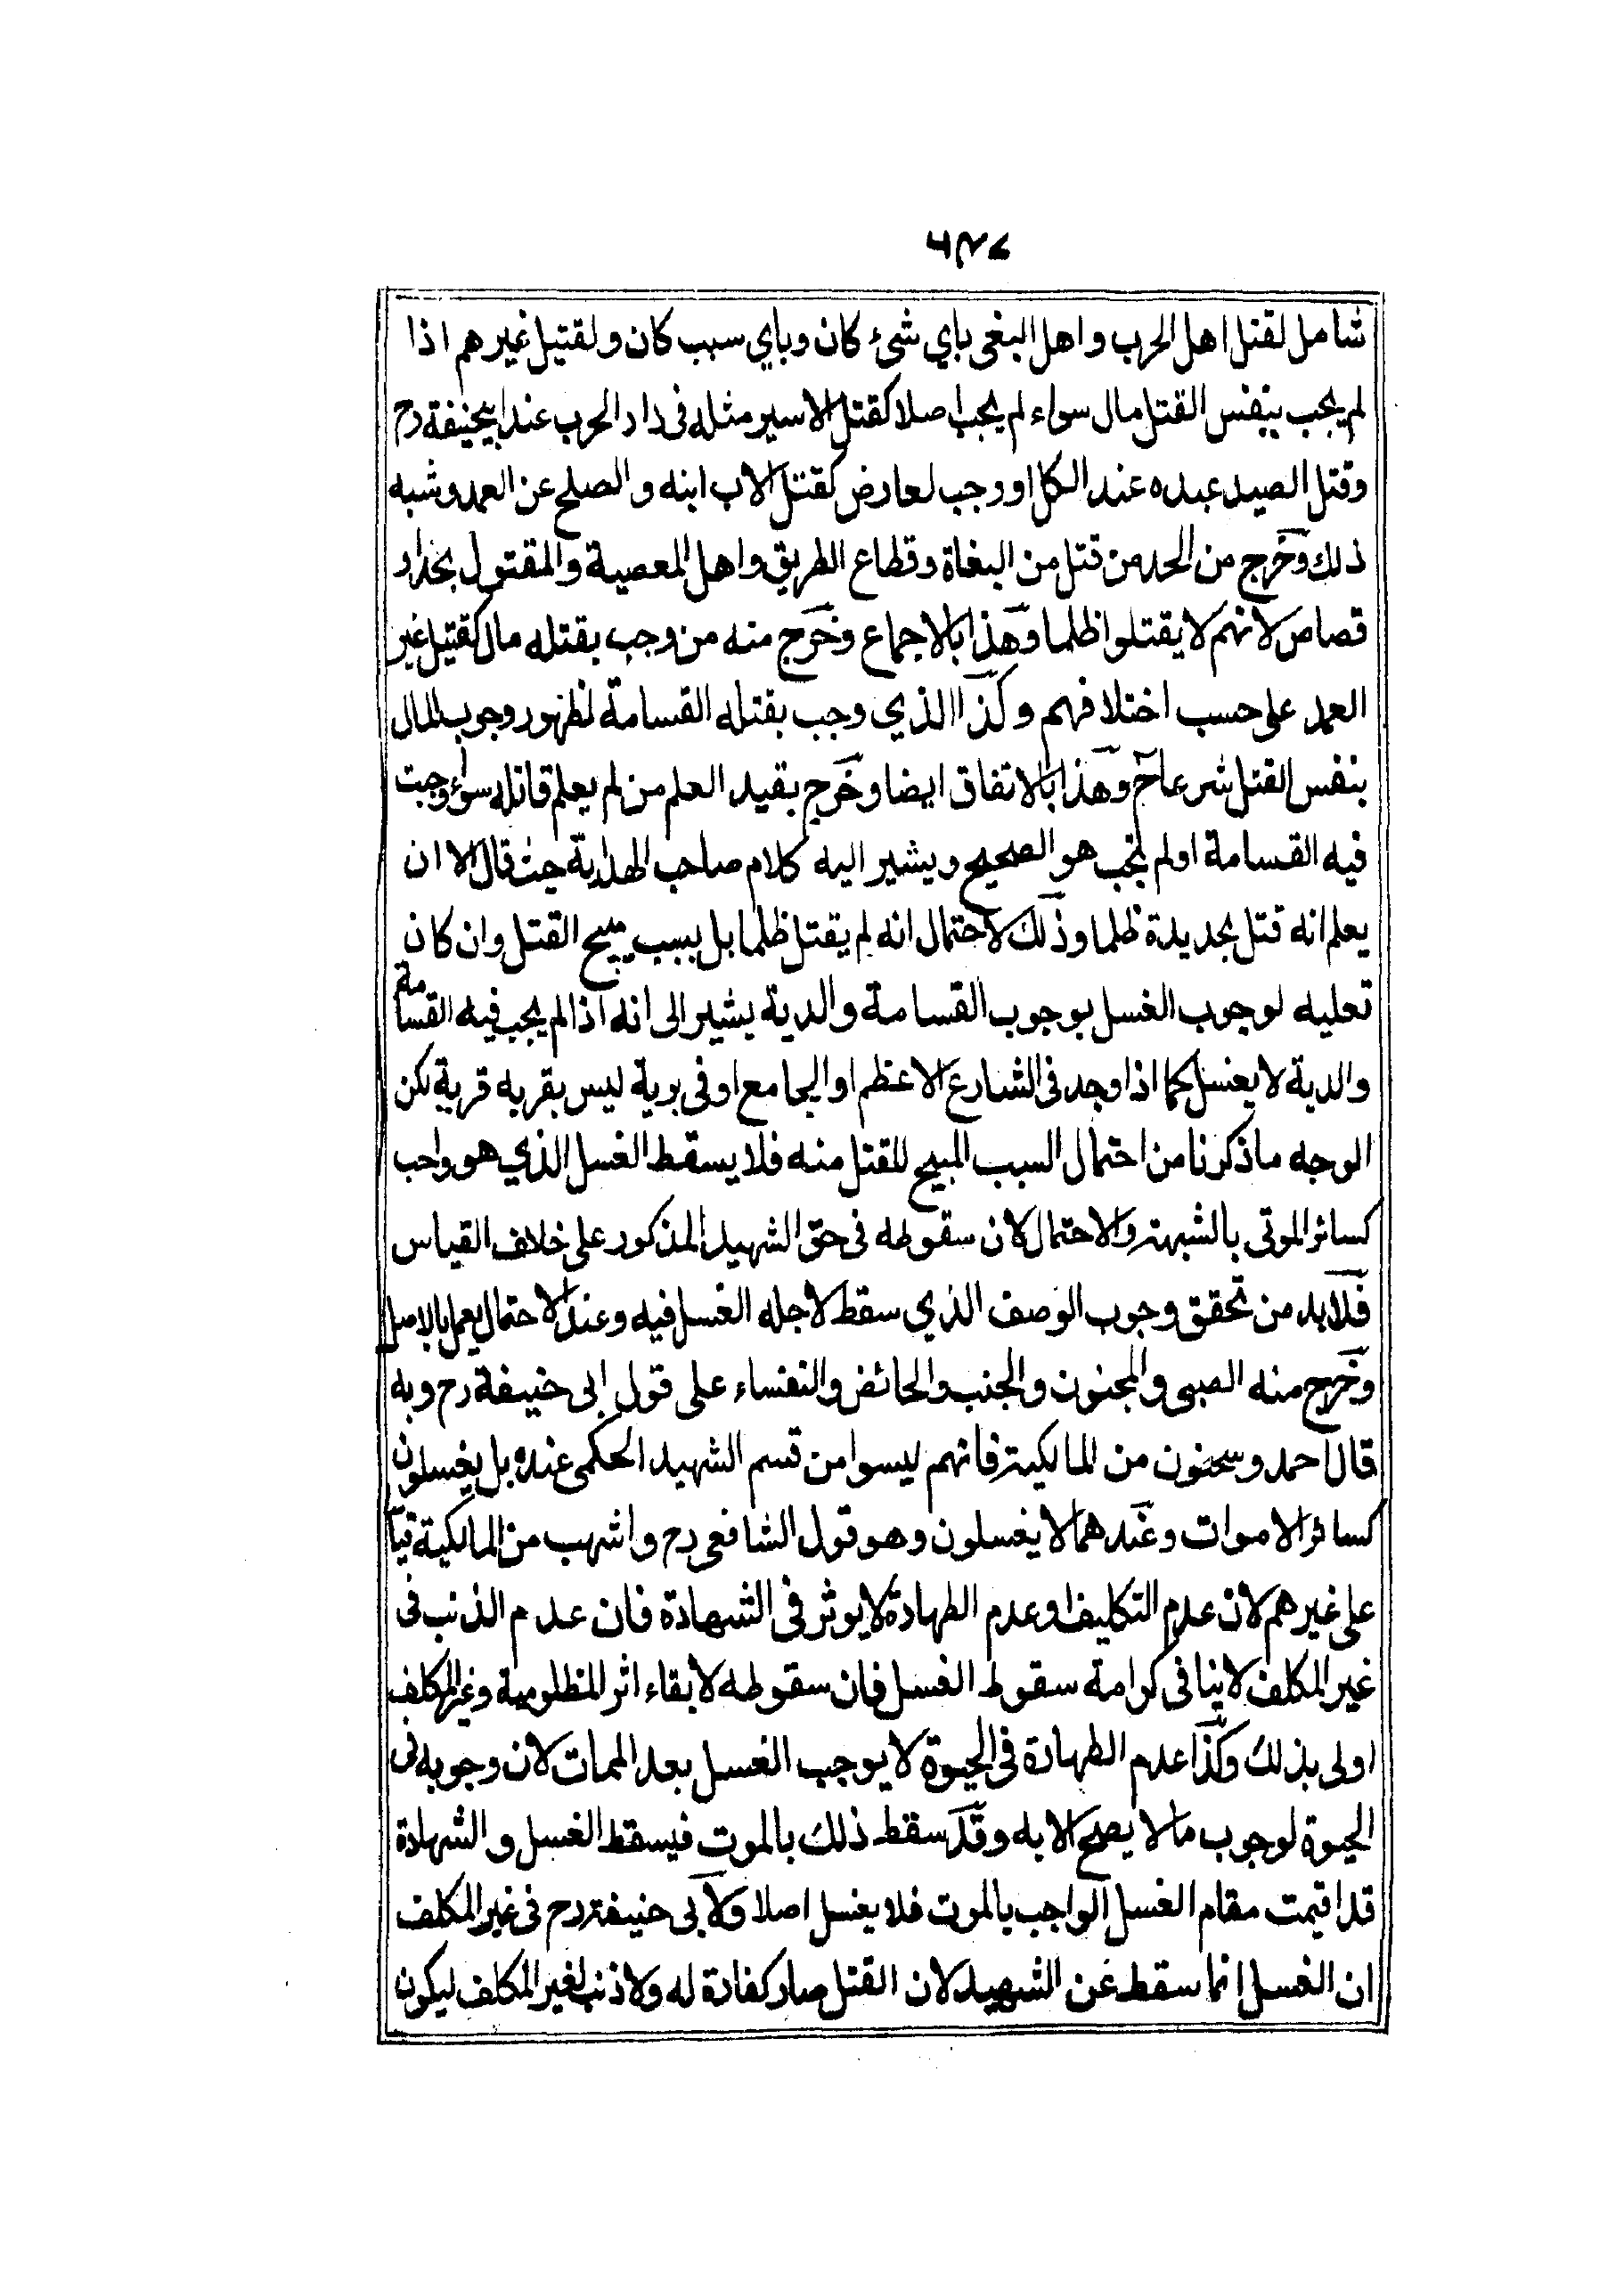 شامل لقتل اهل الحرب واهل البغى باي شئ كان وباي سبب كان ولقتيل غيرهم اذا
لم يجب بنفس القتل مال سواء لم يجب اصلا كقتل الاسير مثله فى دار الحرب عند ابيحنيفة رح
وقتل السيد عبده عند الكل او وجب لعارض كقتل الاب ابنه والصلح عن العمد وشبه
ذلك وخرج من الحد من قتل من البغاة وقطاع الطريق واهل المعصية والمقتول بحد او
قصاص لانهم لا يقتلوا ظلما وهذا بالاجماع وخرج منه من وجب بقتله مال كقتيل غير
العمد على حسب اختلافهم وكذا الذي وجب بقتله القسامة لظهور وجوب المال
بنفس القتل شرعا ح وهذا بالاتفاق ايضا وخرج بقيد العلم من لم يعلم قاتله سواء وجبت
فيه القسامة اولم تجب هو الصحيح ويشير اليه كلام صاحب الهداية حيث قال الا ان
يعلم انه قتل بحديدة ظلما وذلك لاحتمال انه لم يقتل ظلما بل بسبب يبيح القتل وان كان
تعليه لوجوب الغسل بوجوب القسامة والدية يشير الى انه اذا لم يجب فيه القسامة
والدية لا يغسل كما اذا وجد فى الشارع الاعظم او الجامع او فى برية ليس بقربه قرية لكن
الوجه ما ذكرنا من احتمال السبب المبيح للقتل منه فلا يسقط الغسل الذي هو واجب
كسائر الموتى بالشبهة والاحتمال لان سقوطه فى حق الشهيد المذكور على خلاف القياس
فلابد من تحقق وجوب الوصف الذي سقط لاجله الغسل فيه وعند الاحتمال يعمل بالاصل
وخرج منه الصبى والمجنون والجنب والحائض والنفساء على قول ابى حنيفة رح وبه
قال احمد وسحنون من المالكية فانهم ليسوا من قسم الشهيد الحكمى عنده بل يغسلون
كسائر الاموات وعندهما لا يغسلون وهو قول الشافعى رح واشهب من المالكية قيا
على غيرهم لان عدم التكليف وعدم الطهارة لا يوثر فى الشهادة فان عدم الذنب فى
غير المكلف لا ينا فى كرامة سقوط الغسل فان سقوطه لابقاء اثر المظلومية وغير المكلف
اولى بذلك وكذا عدم الطهارة فى الحيوة لا يوجب الغسل بعد الممات لان وجوبه فى
الحيوة لوجوب ما لا يصح الا به وقد سقط ذلك بالموت فيسقط الغسل والشهادة
قد اقيمت مقام الغسل الواجب بالموت فلا يغسل اصلا ولابى حنيفة رح فى غير المكلف
ان الغسل انما سقط عن الشهيد لان القتل صار كفارة له ولا ذنب لغير المكلف ليكون